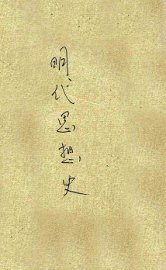 明代思想史